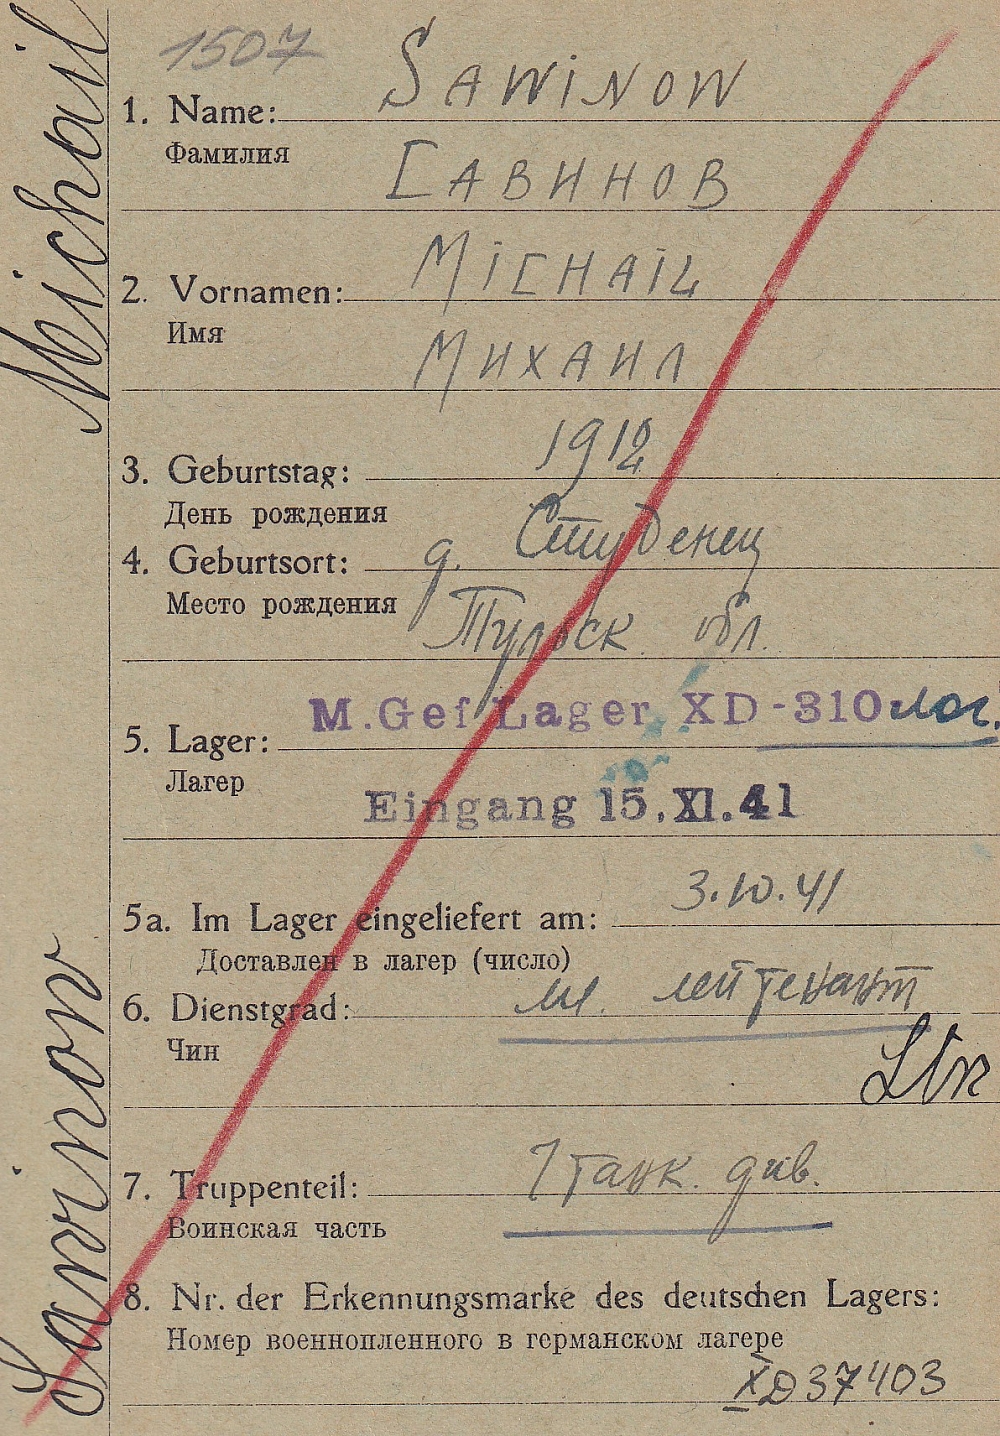 1507
1. Name: SAWiNOW
Фамилия
САВИНОВ
2. Vornamen: MiCHAiL
Имя
МИХАИЛ
3. Geburtstag: 1912
День рождения
4. Geburtsort: д. Студенец
Место рождения
Тульск обл.
5. Lager: M. Gef Lager XD-310
Лагер
Eingang 15. XI. 41
5a. Im Lager eingeliefert am: 3.10.41
Доставлен в лагер (число)
6. Dienstgrad: мл. лейтенант
Чин
Ltn
7. Truppenteil: 7 танк. див.
Воинская часть
8. Nr. der Erkennungsmarke des deutschen Lagers:
Номер военнопленного в германском лагере
XD 37403
Sawinow Michail